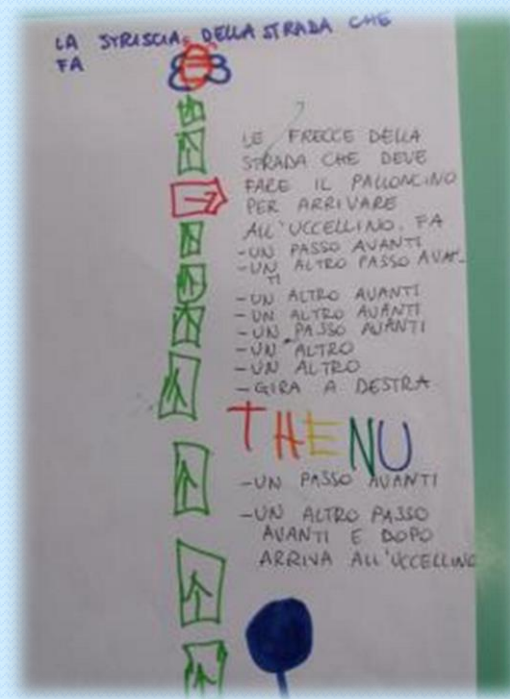 LA STRISCIA DELLA STRADA CHE
FA
LE FRECCE DELLA
STRADA CHE DEVE
FARE IL PALLONCINO
PER ARRIVARE
ALL'UCCELLINO. FA
-UN PASSO AVANTI
-UN ALTRO PASSO AVAN-
TI
-UN ALTRO AVANTI
-UN ALTRO AVANTI
-UN PASSO AVANTI
-UN ALTRO
-UN ALTRO
-GIRA A DESTRA
THENU
-UN PASSO AVANTI
-UN ALTRO PASSO
AVANTI E DOPO
ARRIVA ALL'UCCELLINO